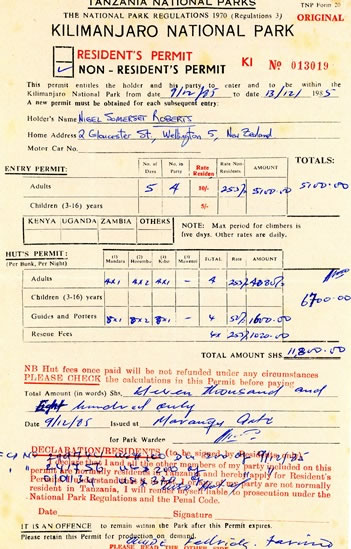 TANZANIA NATIONAL PARKS
TNP Form 20
THE NATIONAL PARK REGULATIONS 1970 (Regulations 3)
ORIGINAL
KILIMANJARO NATIONAL PARK
RESIDENT'S PERMIT
NON - RESIDENT'S PERMIT KI No 013019
This permit entitles the holder and his party to enter and to be within the
Kilimanjaro National Park from date 9/12/85 to date 13/12/ 1985
A new permit must be obtained for each subsequent entry:
Holder's Name NIGEL SOMERSET ROBERTS
Home Address 2 Gloucester St, Wellington 5, New Zealand
Motor Car No.
ENTRY PERMIT: No. of Days No. in Party Rate Residen Rate Non-Residents AMOUNT TOTALS:
Adults 5 4 10/- 255/- 5100.00 5100.00
Children (3-16) years 5/-
KENYA UGANDA ZAMBIA OTHERS
NOTE: Max period for climbers is
five days. Other rates are daily.
HUT'S PERMIT:
(Per Bunk, Per Night)
(1) Mandara (2) Horombo (3) Kibo (4) TOTAL Rate AMOUNT
Adults 4x1 4x2 4x1 — 4 255/- 4080/-
Children (3-16) years
6700.00
Guides and Porters 8x1 8x2 8x1 — 4 1600.00
Rescue Fees 4x 255/- 1020.00
TOTAL AMOUNT SHS 11800.00
NB Hut fees once paid will be not refunded under any circumstances
PLEASE CHECK the calculations in this Permit before paying
Total Amount (in words) Shs. Eleven thousand and
Eight hundred only
Date 9/12/85 Issued at Marangu Gate
for Park Warden
DECLARATION/RESIDENTS to be signed by
declare that I and all the other members of my party included on this
permit are normally resident in Tanzania and hereby apply for Resident's
Permit. I understand that if
resident in Tanzania, I will render myself liable to prosecution under the
National Park Regulations and the Penal Code.
Date Signature
IT IS AN OFFENCE to remain within the Park after this Permit expires.
Please retain this Permit for production on demand.
PLEASE READ THE OTHER SIDE